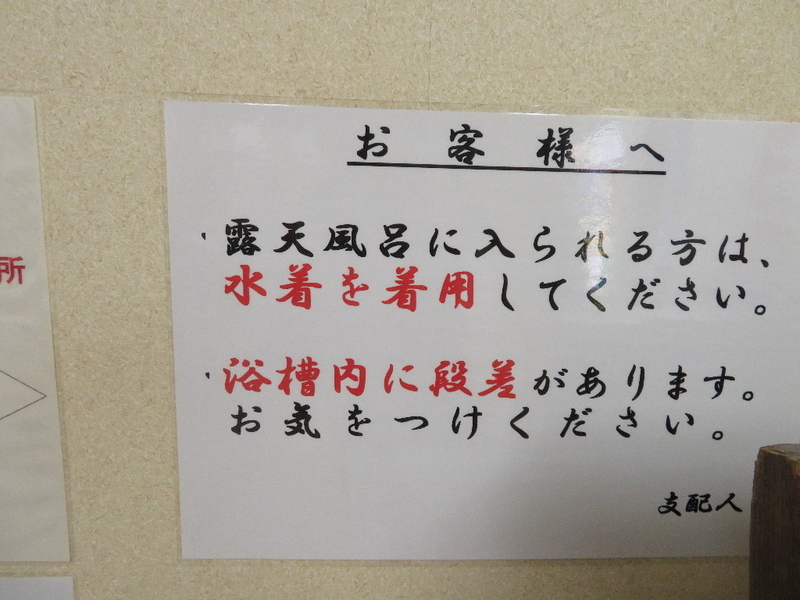 お客様へ
・露天風呂に入られる方は、
水着を着用してください。
・浴槽内に段差があります。
お気をつけください。
支配人
所